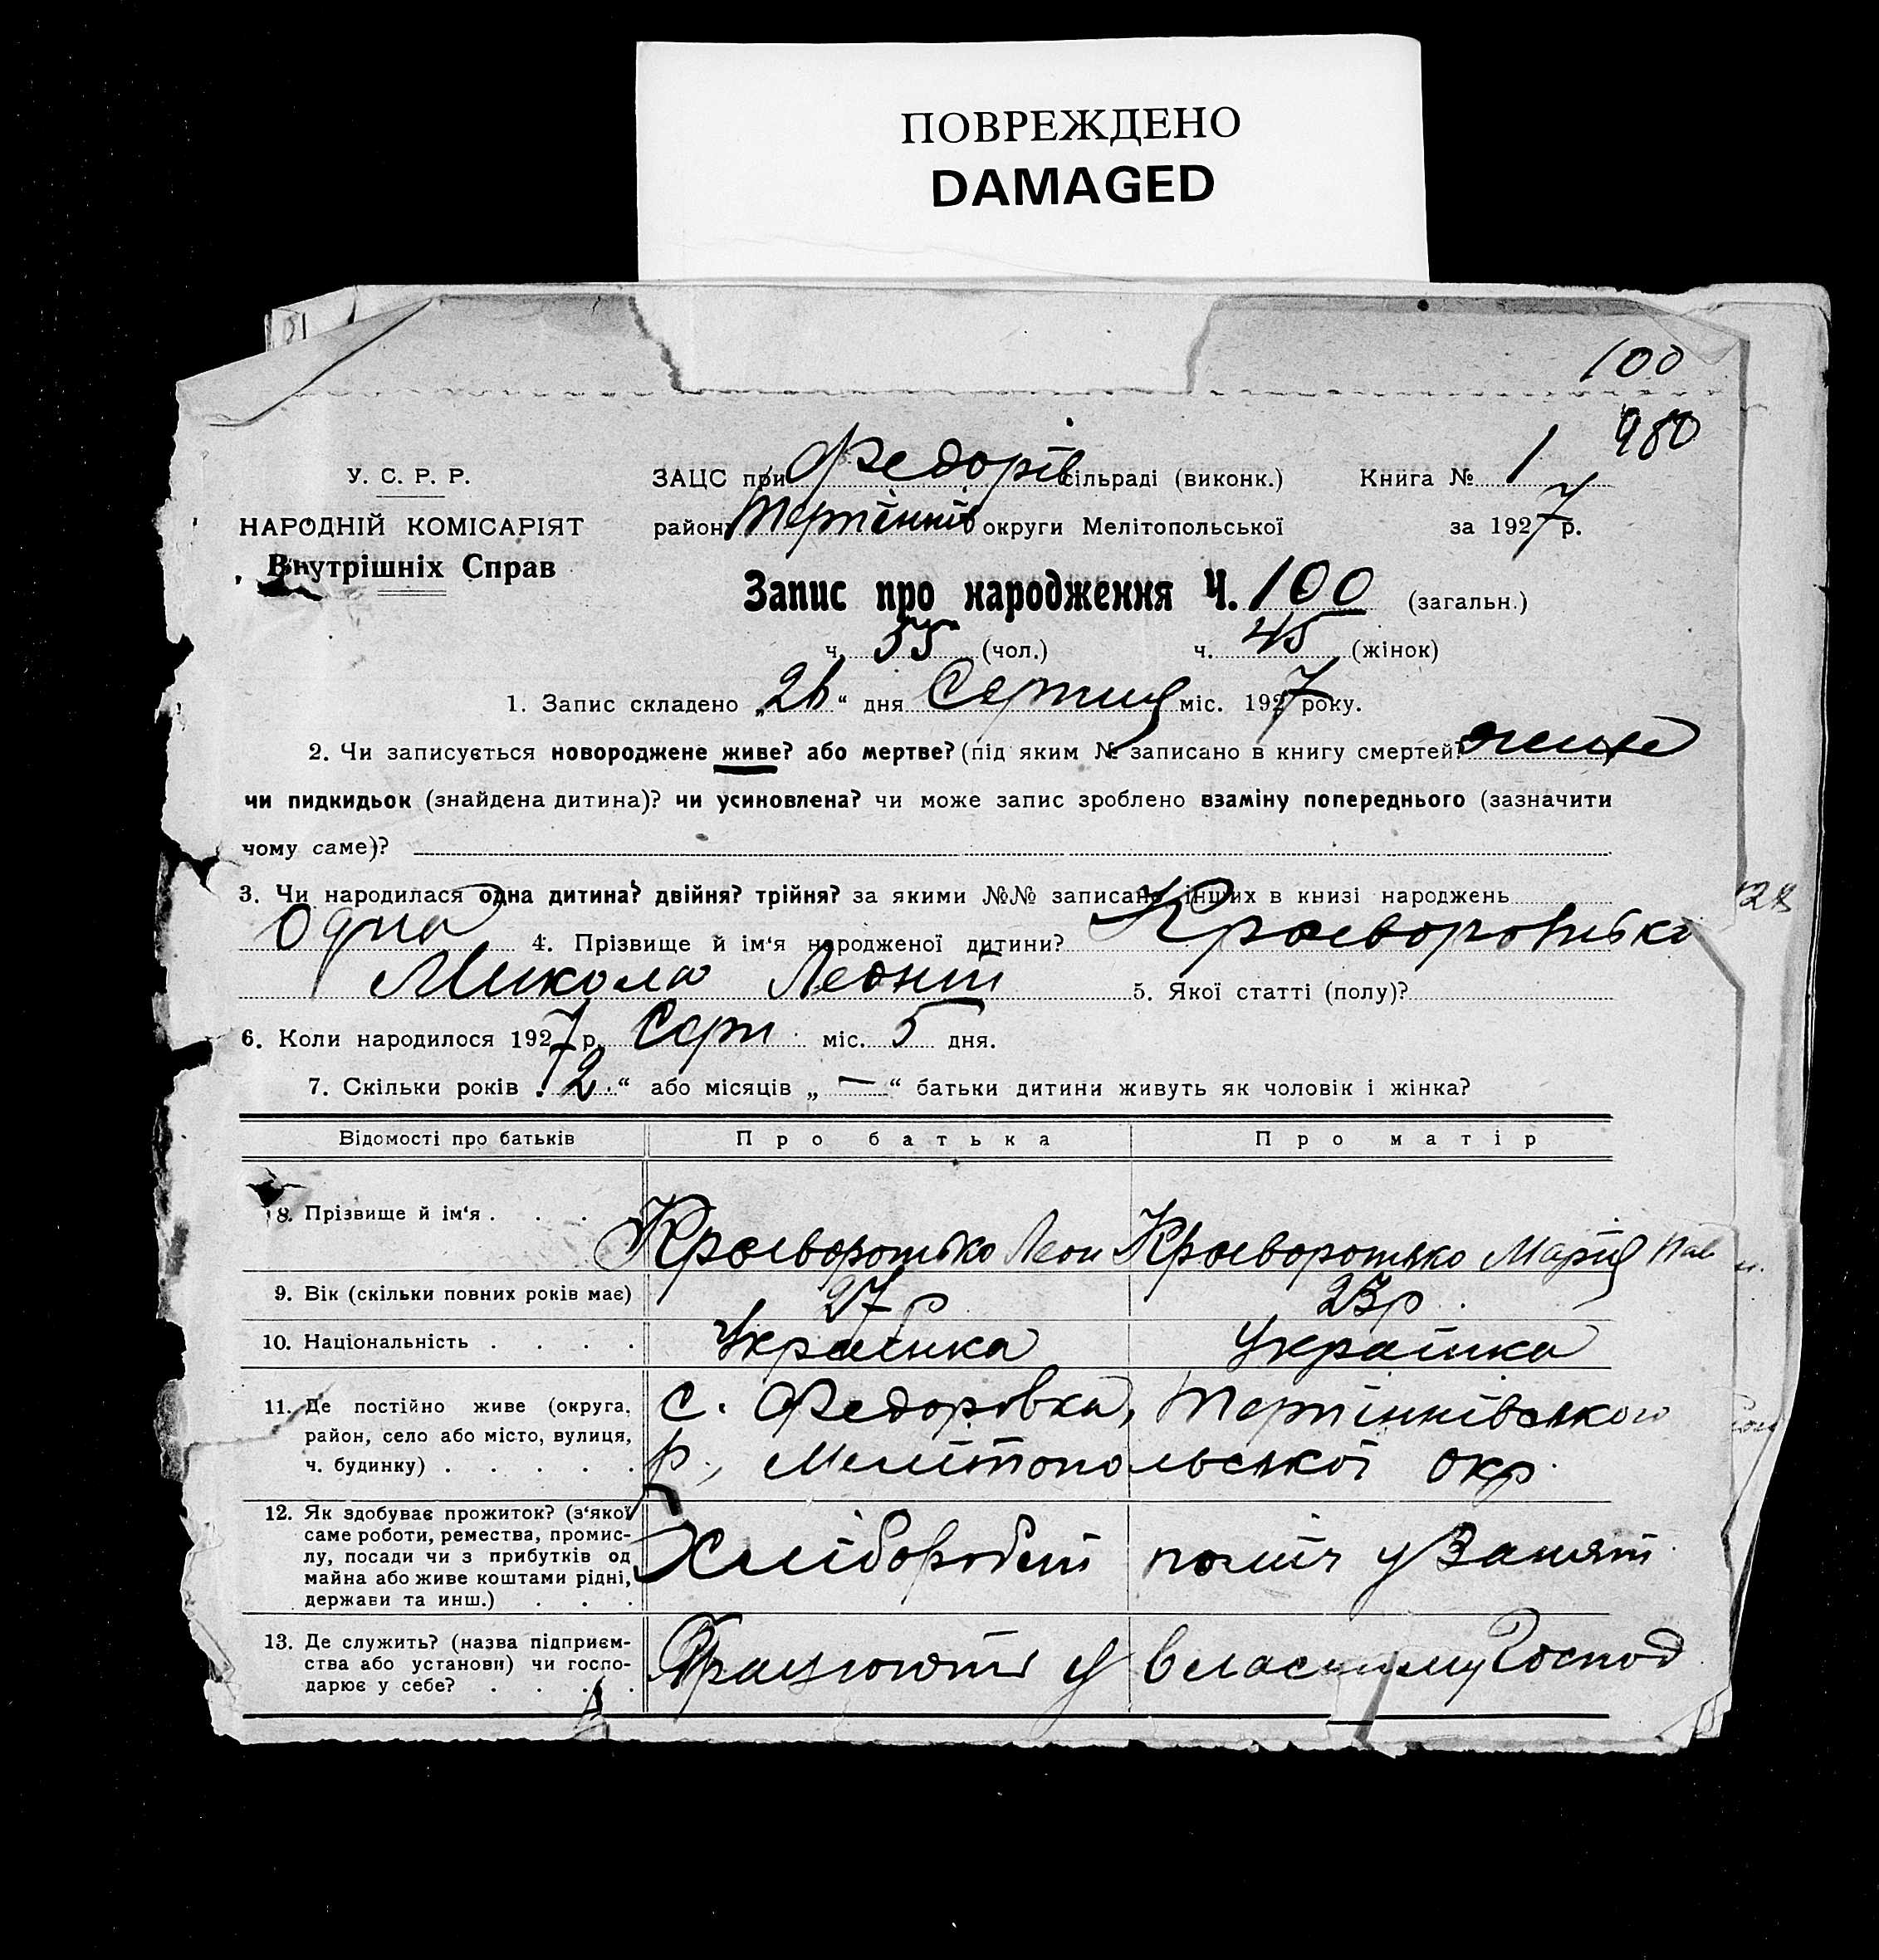 ПОВРЕЖДЕНО
DAMAGED
100
980
У. С. Р. Р.
НАРОДНІЙ КОМІСАРІЯТ
Внутрішніх Справ
ЗАЦС при Федорів сільраді (виконк.) Книга № 1
район Терпіннів округи Мелітопольської за 1927 р.
Запис про народження Ч. 100 (загальн.)
ч. 55 (чол.) ч. 45 (жінок)
1. Запис складено „26“ дня Серпня міс. 1927 року.
2. Чи записується новороджене живе? або мертве? (під яким № записано в книгу смертей? живе)
чи пидкидьок (знайдена дитина)? чи усиновлена? чи може запис зроблено взаміну попереднього (зазначити
чому саме)?
3. Чи народилася одна дитина? двійня? трійня? за якими №№ записано інших в книзі народжень
Одна 4. Прізвище й ім‘я народженої дитини? Краеворотько
Микола Леонт 5. Якої статті (полу)?
6. Коли народилося 1927 р. Серп міс. 5 дня.
7. Скільки років „2“ або місяців „—“ батьки дитини живуть як чоловік і жінка?
Відомості про батьків Про батька Про матір
8. Прізвище й ім‘я . . . Краеворотько Леон Краеворотько Марія Пав
9. Вік (скільки повних років має) 27 р 23 р.
10. Національність . . . . Українка Українка
11. Де постійно живе (округа, с. Федоровка, Терпіннівського
район, село або місто, вулиця,
ч. будинку) . . . . . р., Мелітопольської окр.
12. Як здобуває прожиток? (з‘якої
саме роботи, ремества, промис-
лу, посади чи з прибутків од Хліборобст поміч у Занят
майна або живе коштами рідні,
держави та инш.) . . .
13. Де служить? (назва підприєм-
ства або установи) чи госпо- Працюють у власному Господ
дарює у себе? . . . .